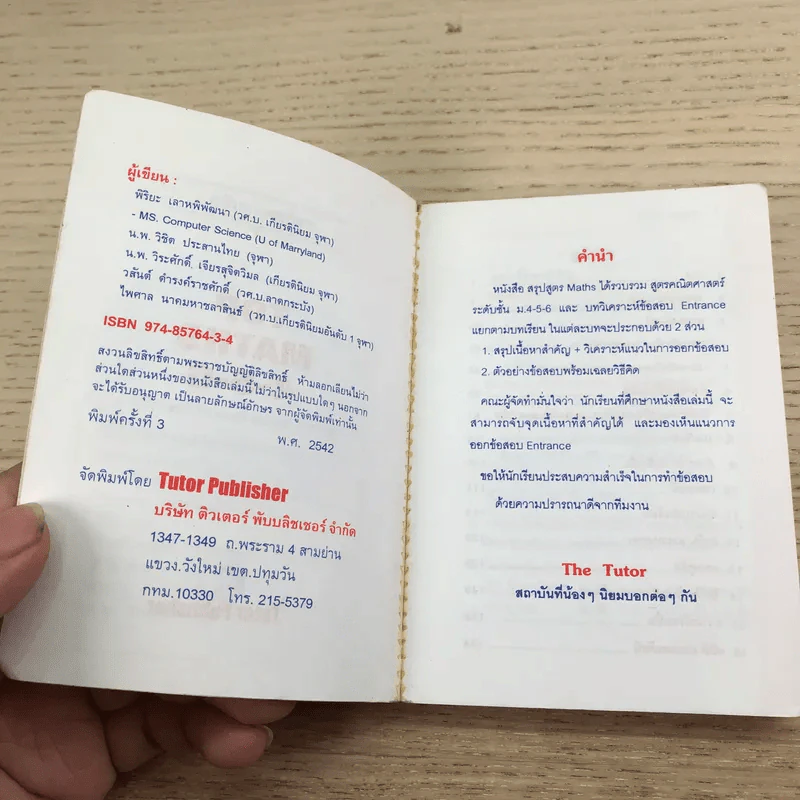 ผู้เขียน :
พิริยะ เลาหพิพัฒนา (วศ.บ. เกียรตินิยม จุฬา)
- MS. Computer Science (U of Marryland)
น.พ. วิชิต ประสานไทย (จุฬา)
น.พ. วิระศักดิ์ เจียรสุจิตวิมล (เกียรตินิยม จุฬา)
วสันต์ ดำรงค์ราชศักดิ์ (วศ.บ.ลาดกระบัง)
ไพศาล นาคมหาชลาสินธ์ (วท.บ.เกียรตินิยมอันดับ 1 จุฬา)
ISBN 974-85764-3-4
สงวนลิขสิทธิ์ตามพระราชบัญญัติลิขสิทธิ์ ห้ามลอกเลียนไม่ว่า
ส่วนใดส่วนหนึ่งของหนังสือเล่มนี้ไม่ว่าในรูปแบบใดๆ นอกจาก
จะได้รับอนุญาต เป็นลายลักษณ์อักษร จากผู้จัดพิมพ์เท่านั้น
พิมพ์ครั้งที่ 3 พ.ศ. 2542
จัดพิมพ์โดย Tutor Publisher
บริษัท ติวเตอร์ พับบลิชเชอร์ จำกัด
1347-1349 ถ.พระราม 4 สามย่าน
แขวง.วังใหม่ เขต.ปทุมวัน
กทม.10330 โทร. 215-5379
คำนำ
หนังสือ สรุปสูตร Maths ได้รวบรวม สูตรคณิตศาสตร์
ระดับชั้น ม.4-5-6 และ บทวิเคราะห์ข้อสอบ Entrance
แยกตามบทเรียน ในแต่ละบทจะประกอบด้วย 2 ส่วน
1. สรุปเนื้อหาสำคัญ + วิเคราะห์แนวในการออกข้อสอบ
2. ตัวอย่างข้อสอบพร้อมเฉลยวิธีคิด
คณะผู้จัดทำมั่นใจว่า นักเรียนที่ศึกษาหนังสือเล่มนี้ จะ
สามารถจับจุดเนื้อหาที่สำคัญได้ และมองเห็นแนวการ
ออกข้อสอบ Entrance
ขอให้นักเรียนประสบความสำเร็จในการทำข้อสอบ
ด้วยความปรารถนาดีจากทีมงาน
The Tutor
สถาบันที่น้องๆ นิยมบอกต่อๆ กัน